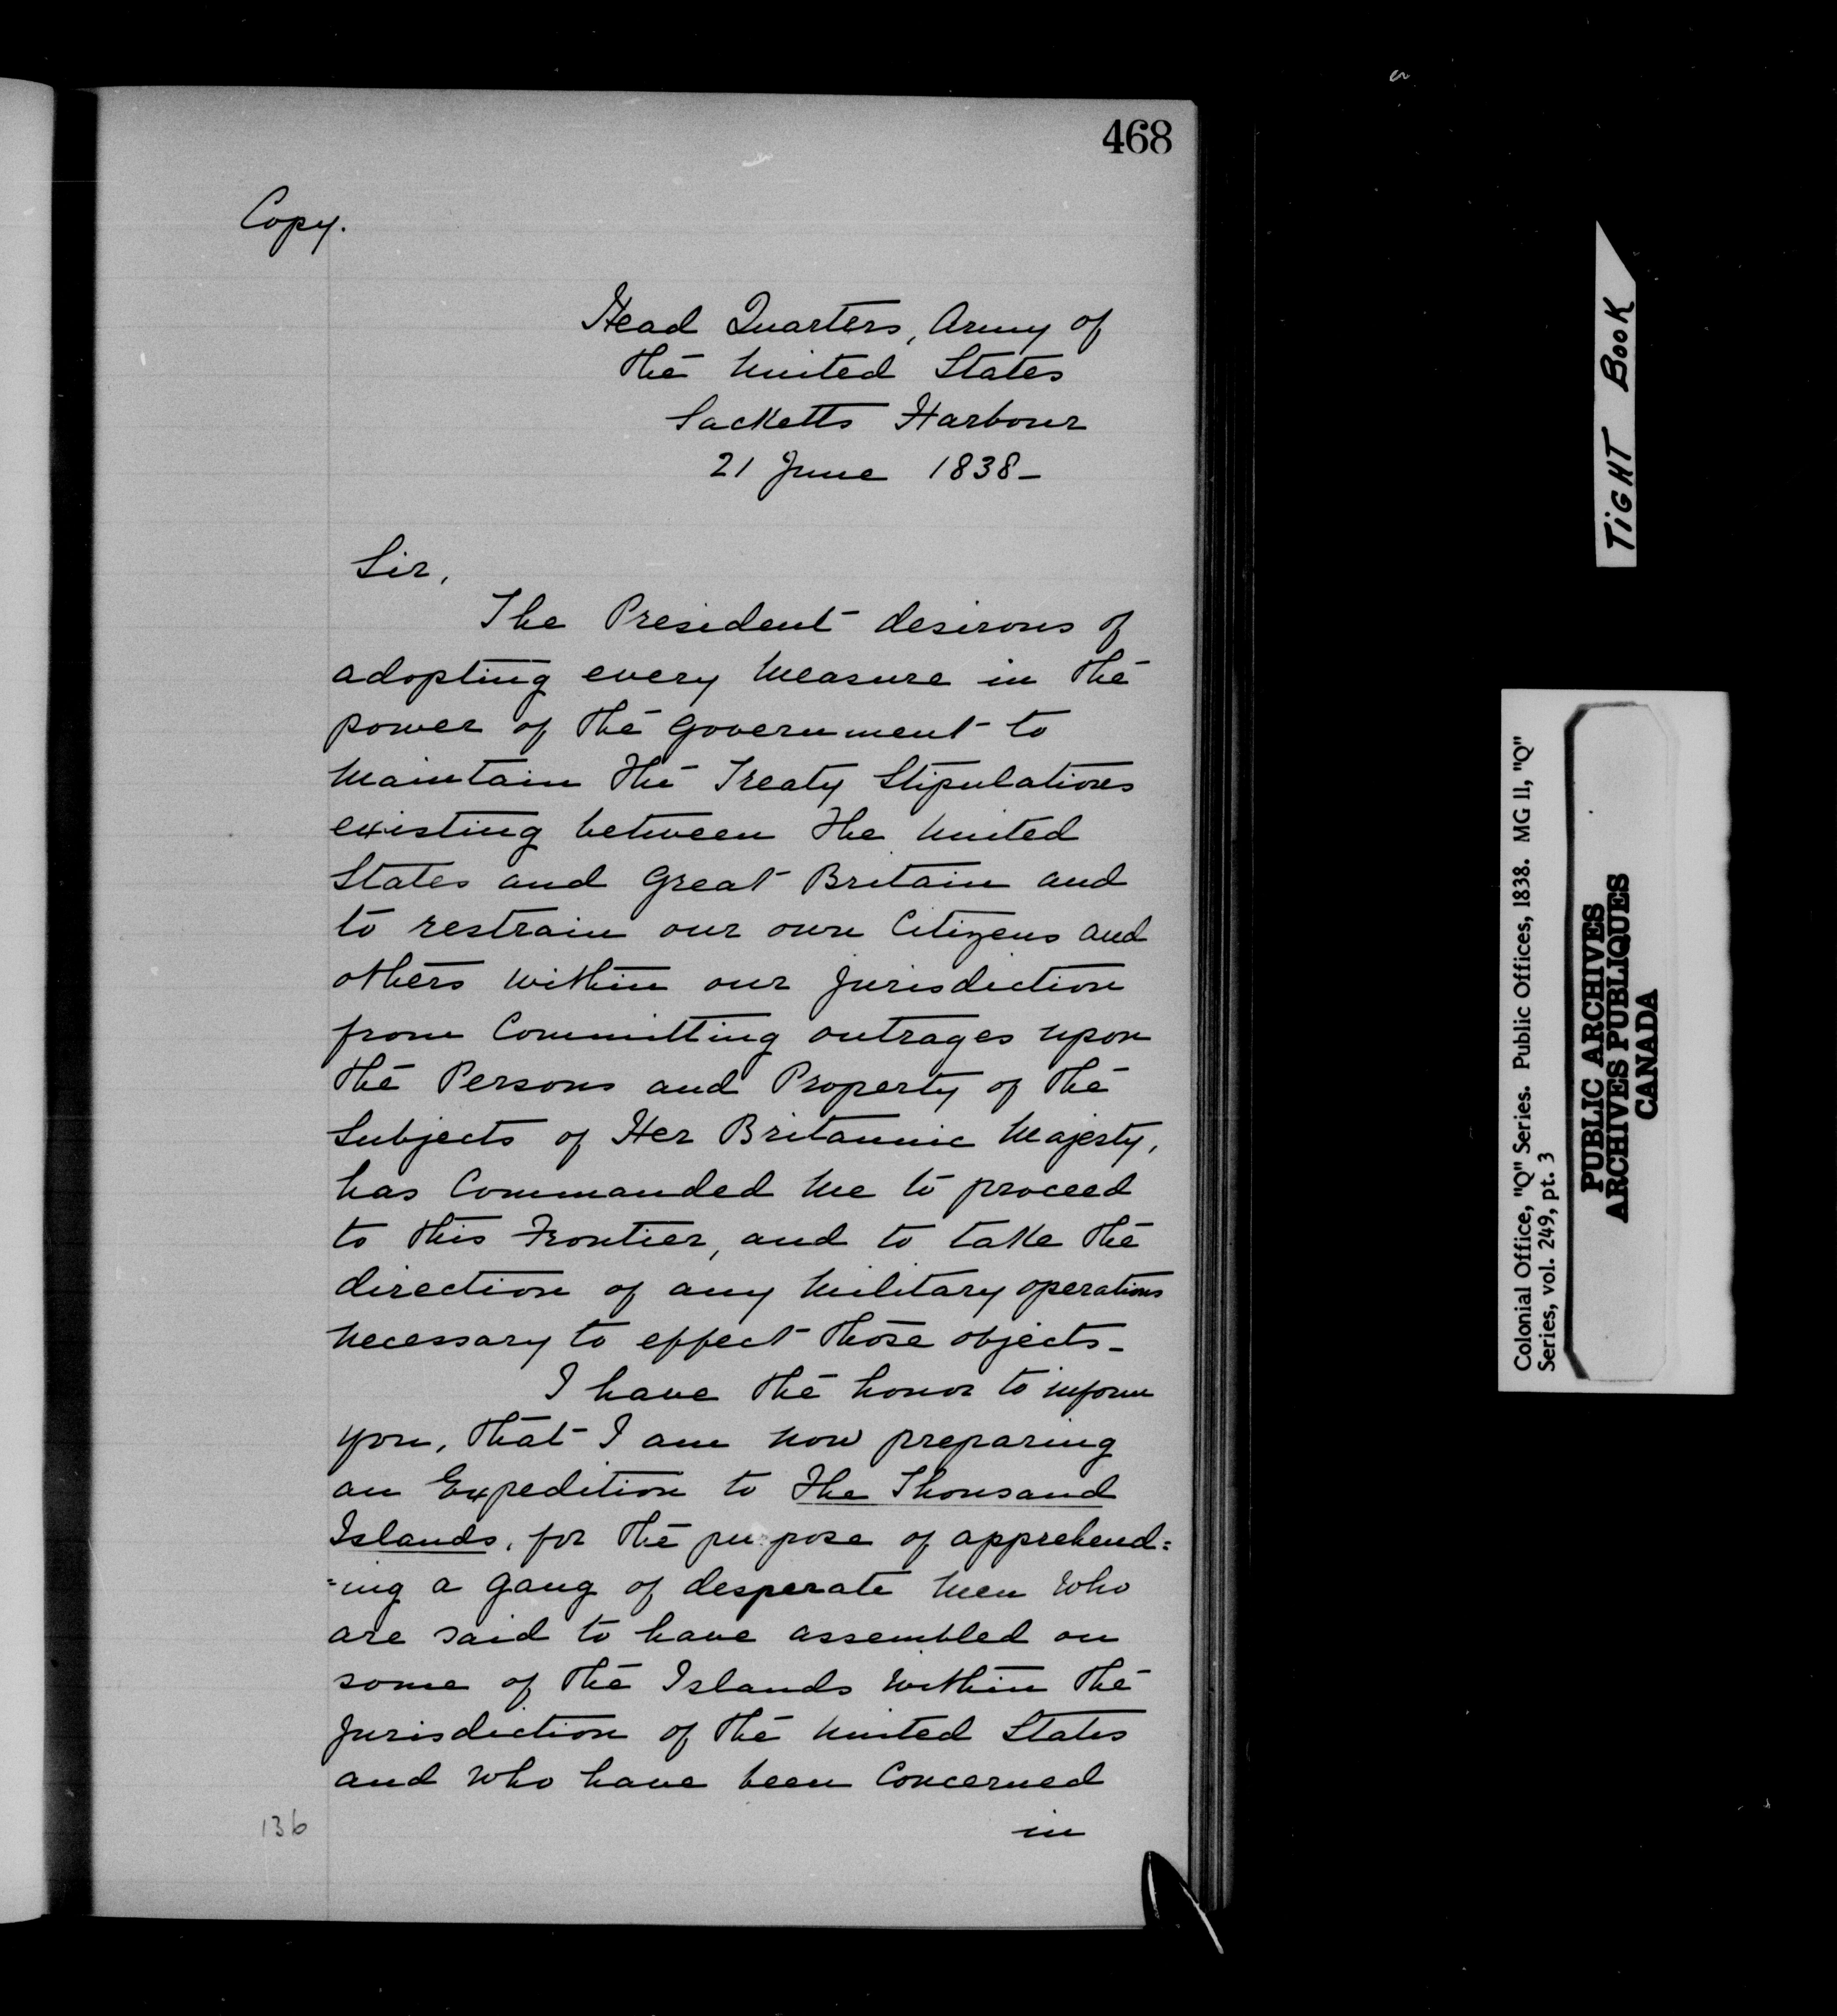 468
Copy.
Head Quarters, Army of
the United States
Sacketts Harbour
21 June 1838 –
Sir,
The President desirous of
adopting every Measure in the
power of the Government to
Maintain the Treaty Stipulations
existing between the United
States and Great Britain and
to restrain our own Citizens and
others within our Jurisdiction
from Committing outrages upon
the Persons and Property of the
Subjects of Her Britannic Majesty,
has Commanded Me to proceed
to this Frontier, and to take the
direction of any Military operations
Necessary to effect those objects –
I have the honor to inform
you, that I am Now preparing
an Expedition to The Thousand
Islands, for the purpose of apprehend=
=ing a Gang of desperate Men Who
are said to have assembled on
some of the Islands Within the
Jurisdiction of the United States
and Who have been Concerned
in
136
TiGHT BOOK
Colonial Office, "Q" Series. Public Offices, 1838. MG 11, "Q"
Series, vol. 249, pt. 3
PUBLIC ARCHIVES
ARCHIVES PUBLIQUES
CANADA